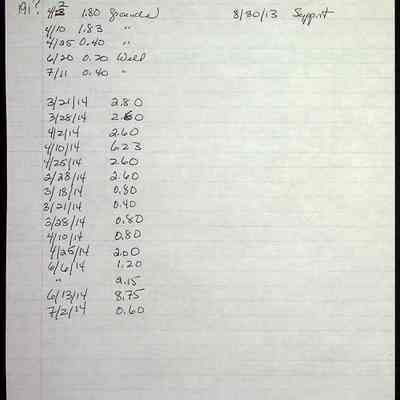 191? 4/3 1.80 grounds 8/30/13 Support
4/10 1.83 "
4/25 0.40 "
6/20 0.20 Well
7/11 0.40 "
3/21/14 2.80
3/28/14 2.60
4/2/14 2.60
4/10/14 6.23
4/25/14 2.60
2/28/14 2.60
3/18/14 0.80
3/21/14 0.40
3/28/14 0.80
4/10/14 0.80
4/25/14 2.00
6/6/14 1.20
" 9.15
6/13/14 8.75
7/2/14 0.60